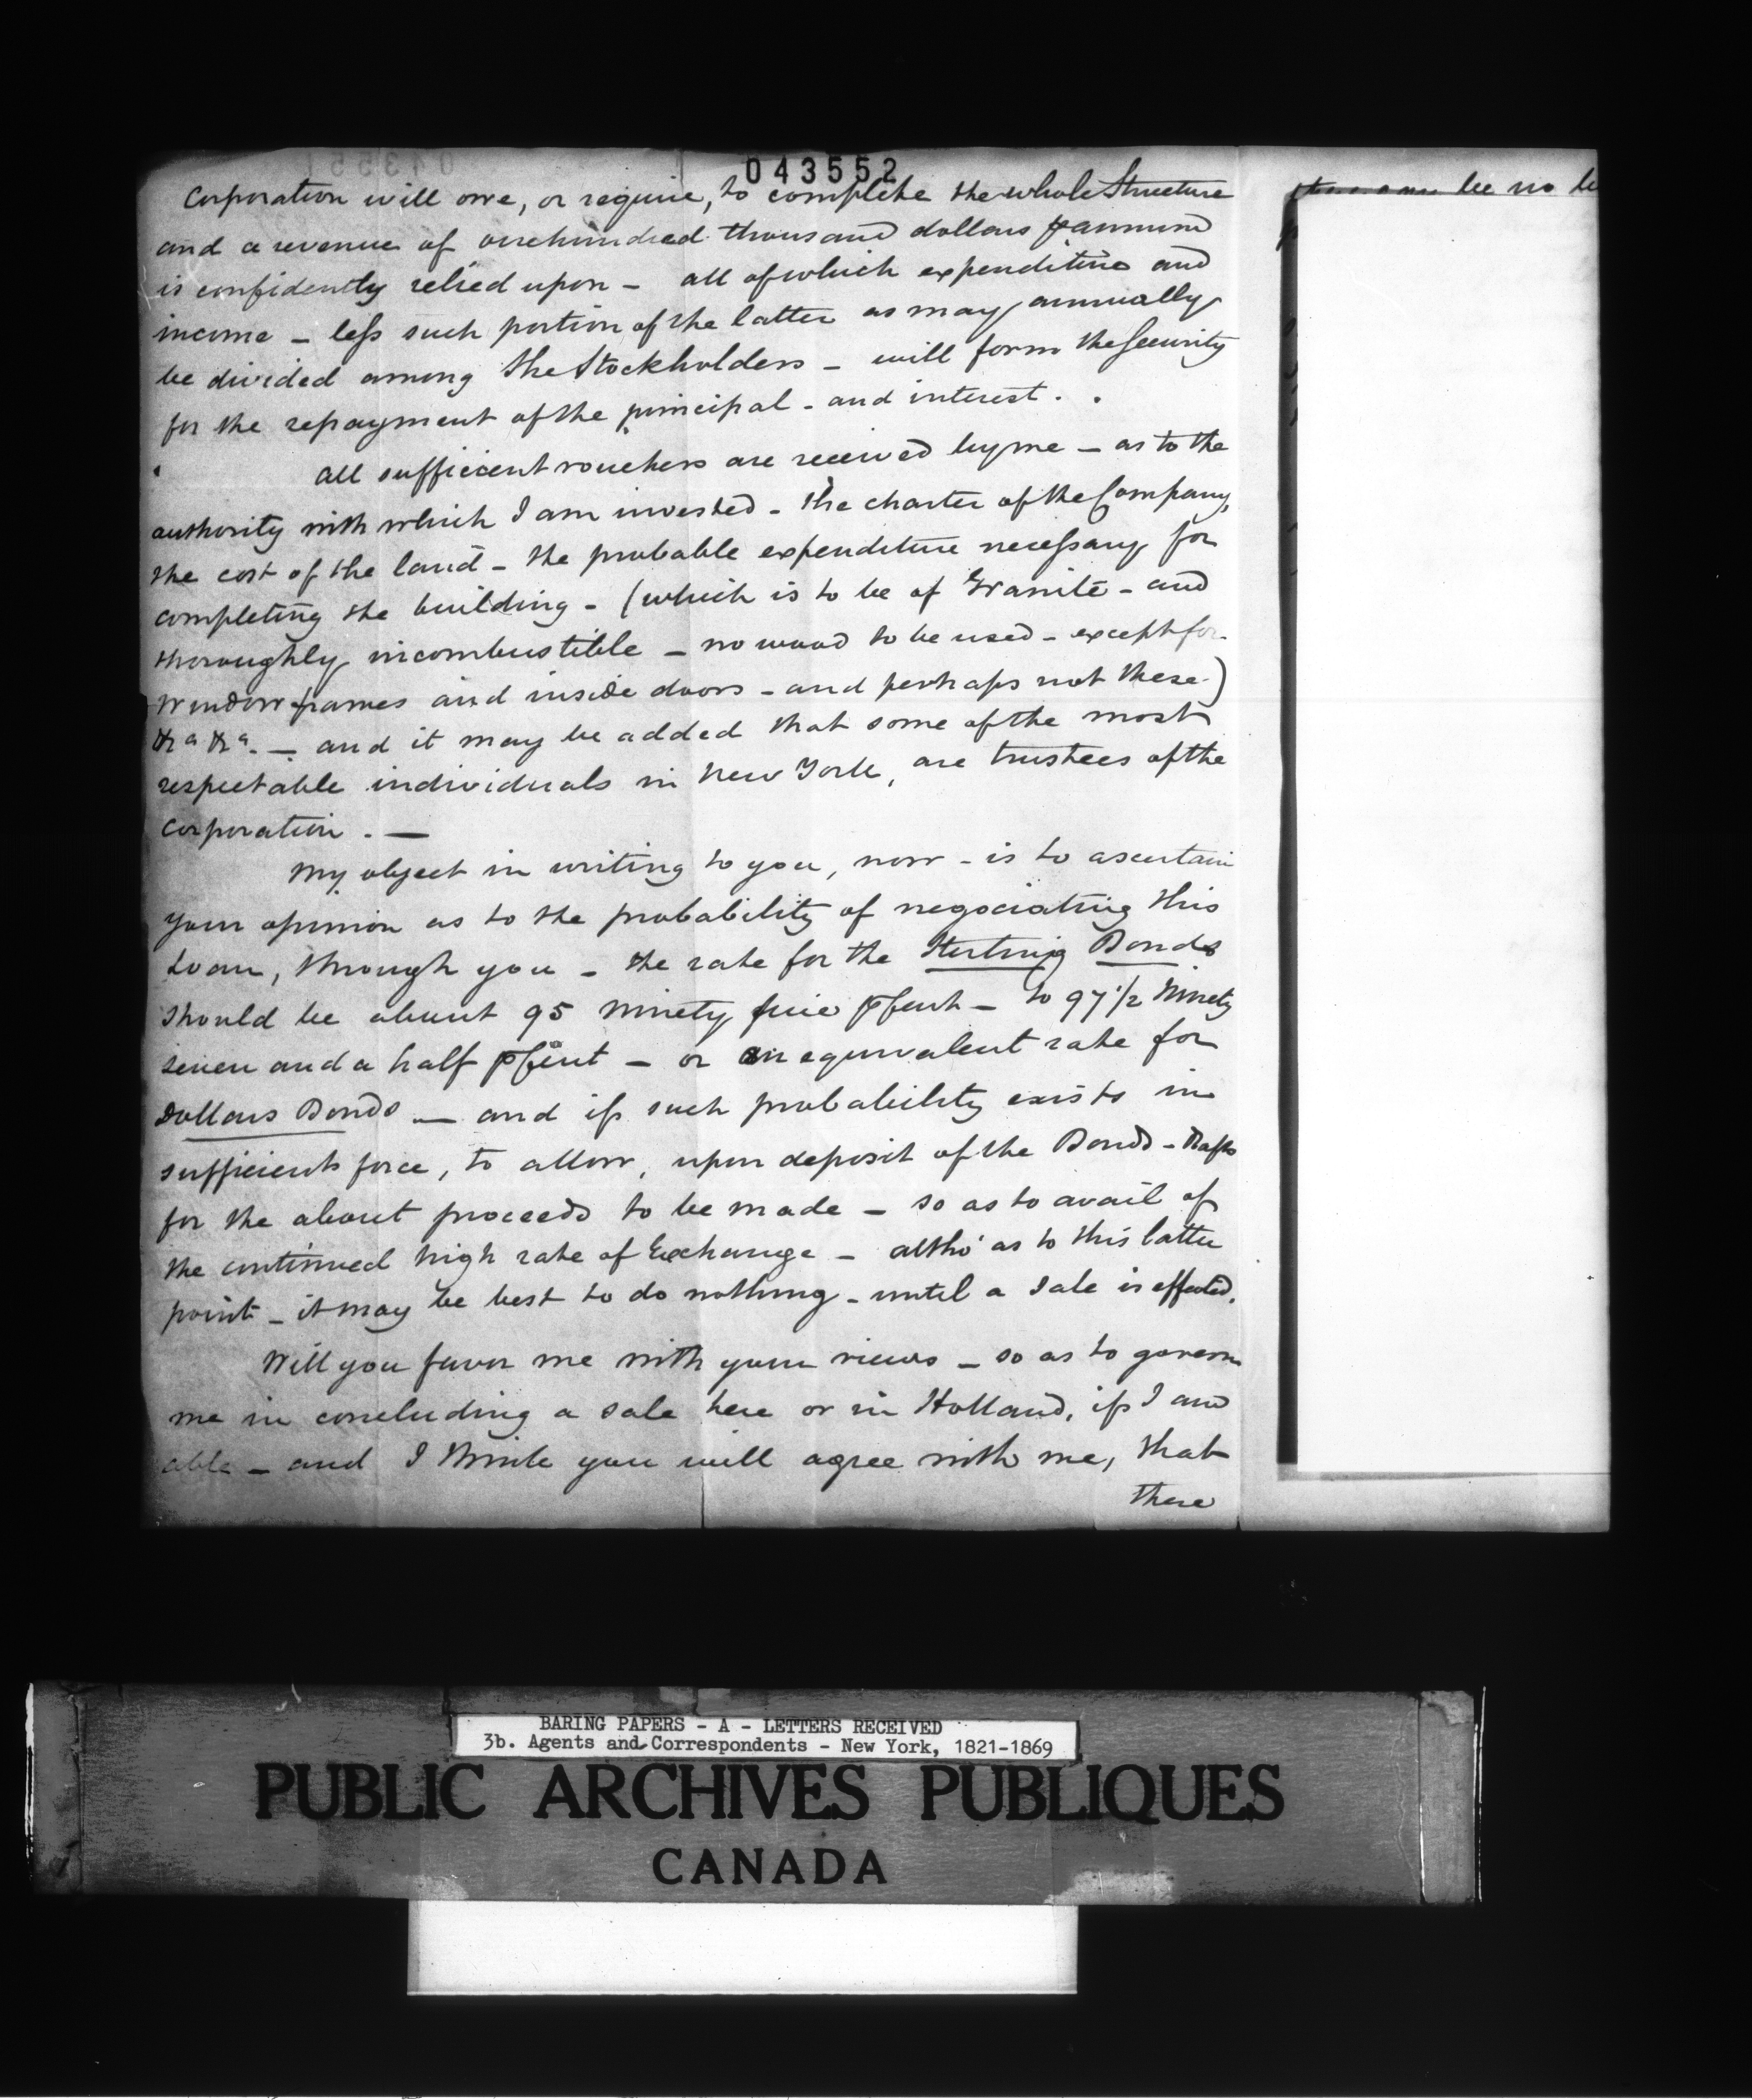 043552
Corporation will owe, or require, to complete the whole Structure
and a revenue of one hundred thousand dollars ⅌ annum
is confidently relied upon – all of which expenditure and
income – less such portion of the latter as may annually
be divided among the Stockholders – will form the Security
for the repayment of the principal – and interest.
All sufficient vouchers are received by me – as to the
authority with which I am invested – the charter of the Company,
the cost of the land – the probable expenditure necessary for
completing the building – (which is to be of Granite – and
thoroughly incombustible – no wood to be used – except for
window frames and inside doors – and perhaps not these)
&a &a. – and it may be added that some of the most
respectable individuals in New York, are trustees of the
Corporation. –
My object in writing to you, now – is to ascertain
your opinion as to the probability of negociating this
Loan, through you – the rate for the Sterling Bonds
should be about 95 ninety five ⅌ Cent – to 97 1/2 Ninety
seven and a half ⅌ Cent – or an equivalent rate for
Dollars Bonds – and if such probability exists in
sufficient force, to allow, upon deposit of the Bonds – Drafts
for the about proceeds to be made – so as to avail of
the continued high rate of Exchange – altho' as to this latter
point – it may be best to do nothing – until a Sale is effected.
Will you favor me with your views – so as to govern
me in concluding a sale here or in Holland, if I am
able – and I think you will agree with me, that
there
be no
BARING PAPERS - A - LETTERS RECEIVED
3b. Agents and Correspondents - New York, 1821-1869
PUBLIC ARCHIVES PUBLIQUES
CANADA